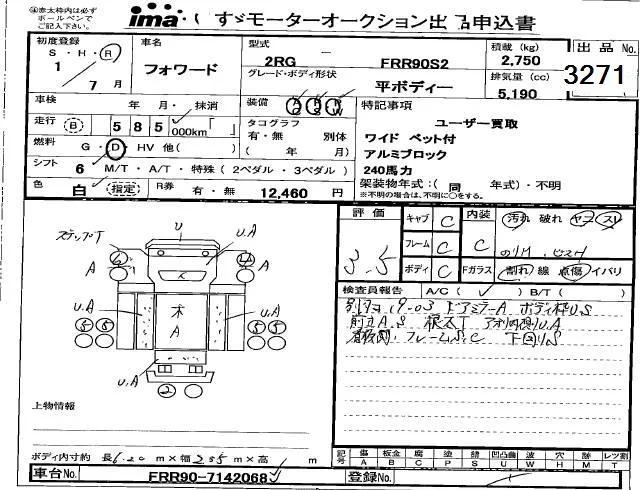 ㊟赤太枠内は必ず
ボールペンで
ご記入下さい。
ima いすゞモーターオークション出品申込書
初度登録
S・H・R
1 7月
車名
フォワード
型式
2RG － FRR90S2
グレード・ボディ形状
平ボディー
積載 (kg)
2,750
排気量 (cc)
5,190
出品 No.
3271
車検 年 月・抹消
走行 B 585,000km「 」
燃料 G・D HV 他( )
シフト 6 M/T・A/T・特殊 (2ペダル・3ペダル)
色 白 (指定) R券 有・無 12,460 円
装備 A P P
G S W
タコグラフ
有・無 別体
( 年 月)
特記事項
ユーザー買取
ワイド ベット付
アルミブロック
240馬力
架装物年式:( 同 年式)・不明
※不明の場合は、不明に○をする。
評価
3.5
キャブ C
フレーム C
ボディ C
内装 C
Fガラス S
汚れ 破れ ヤニ スレ
のりM. ビスH
割れ 線 点傷 イバリ
検査員報告 A/C( ✓ ) B/T( )
ドアミラーA ボディ枠U.S
前立A.S 根太T アオリ内側U.A
フレームS.C 下回りS
ステップT
U
U.A
A
A
U.A
U.A
木
A
U.A
上物情報
ボディ内寸約 長6.20m×幅2.35m×高 m
記号
傷 A
板金 B
腐 C
塗 P
錆 S
凹凸曲 U
波 W
穴 H
跡 M
レツ割 T
車台No. FRR90-7142068
登録No.